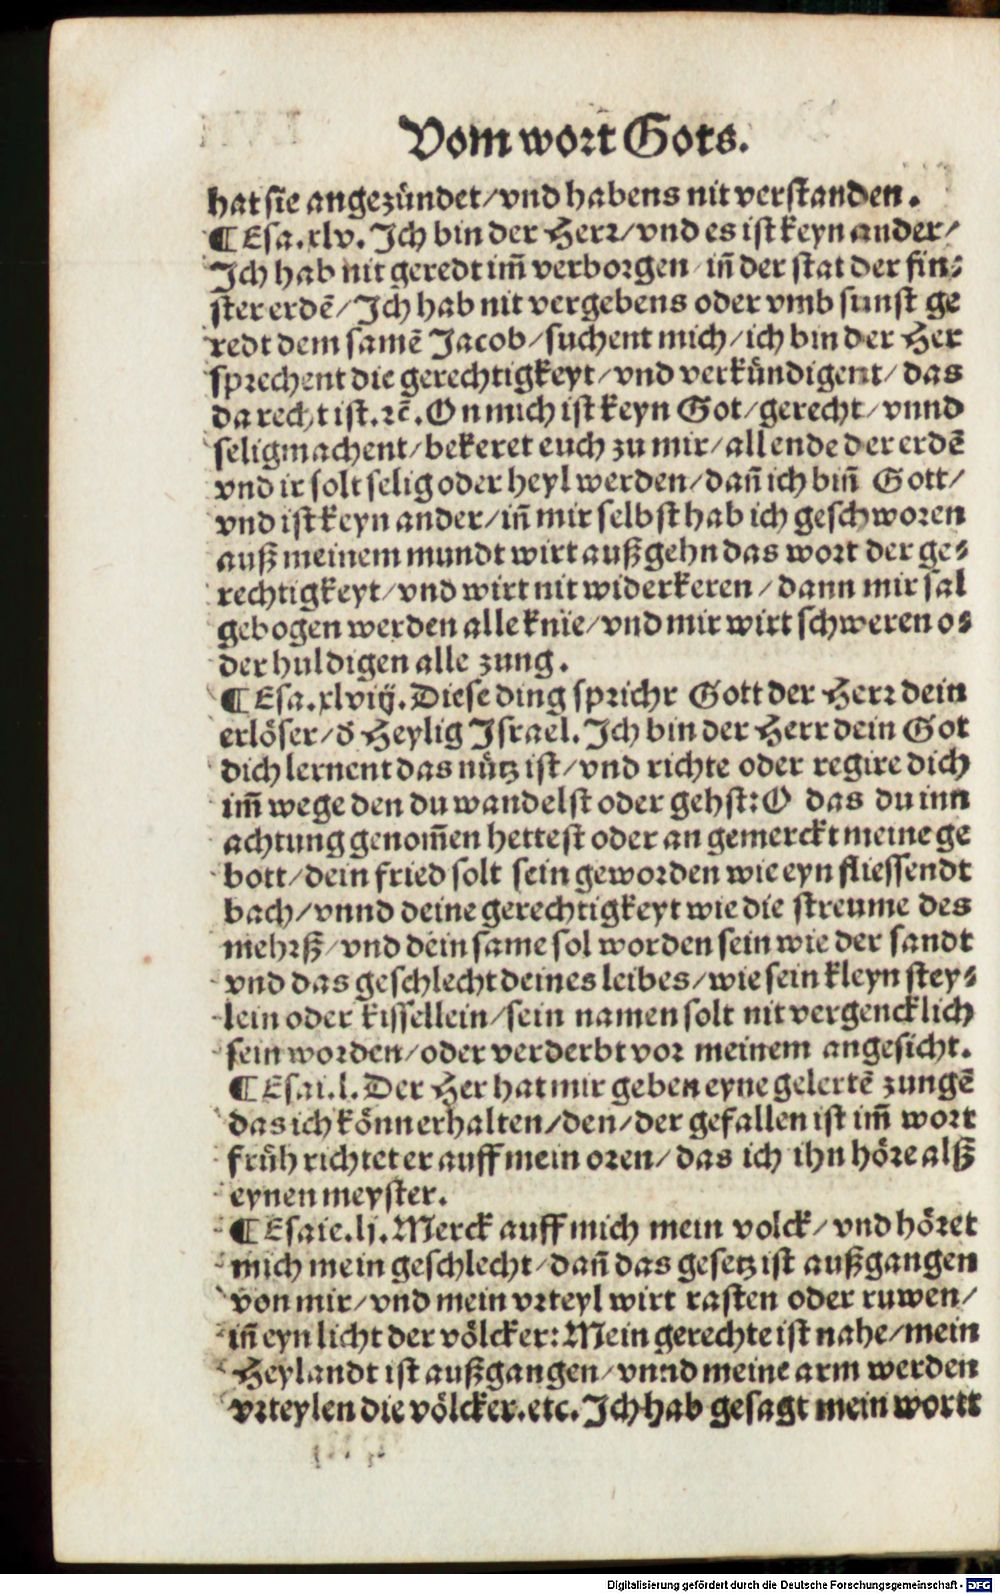 Vom wort Gots.
hat sie angezündet/vnd habens nit verstanden.
¶ Esa.xlv. Ich bin der Herr/vnd es ist keyn ander/
Ich hab nit geredt im̄ verborgen/in̄ der stat der fin⸗
ster erdē/Ich hab nit vergebens oder vmb sunst ge
redt dem samē Jacob/suchent mich/ich bin der Her
sprechent die gerechtigkeyt/vnd verkündigent/das
da recht ist.ꝛc̄. On mich ist keyn Got/gerecht/vnnd
seligmachent/bekeret euch zu mir/all ende der erdē
vnd ir solt selig oder heyl werden/dan̄ ich bin̄ Gott/
vnd ist keyn ander/in̄ mir selbst hab ich geschworen
auß meinem mundt wirt außgehn das wort der ge⸗
rechtigkeyt/vnd wirt nit widerkeren/dann mir sal
gebogen werden alle knie/vnd mir wirt schweren o⸗
der huldigen alle zung.
¶ Esa.xlviij. Diese ding sprichr Gott der Herr dein
erlöser/d̄ Heylig Israel. Ich bin der Herr dein Got
dich lernent das nütz ist/vnd richte oder regire dich
im̄ wege den du wandelst oder gehst: O das du inn
achtung genom̄en hettest oder an gemerckt meine ge
bott/dein fried solt sein geworden wie eyn fliessendt
bach/vnnd deine gerechtigkeyt wie die streume des
mehrß/vnd dein same sol worden sein wie der sandt
vnd das geschlecht deines leibes/wie sein kleyn stey⸗
lein oder kissellein/sein namen solt nit vergencklich
sein worden/oder verderbt vor meinem angesicht.
¶ Esai.l. Der Her hat mir geben eyne gelertē zungē
das ich könn erhalten/den/der gefallen ist im̄ wort
früh richtet er auff mein oren/das ich ihn höre alß
eynen meyster.
¶ Esaie.lj. Merck auff mich mein volck/vnd höret
mich mein geschlecht/dan̄ das gesetz ist außgangen
von mir/vnd mein vrteyl wirt rasten oder ruwen/
in̄ eyn licht der völcker: Mein gerechte ist nahe/mein
Heylandt ist außgangen/vnnd meine arm werden
vrteylen die völcker.etc. Ich hab gesagt mein wortt
Digitalisierung gefördert durch die Deutsche Forschungsgemeinschaft - DFG